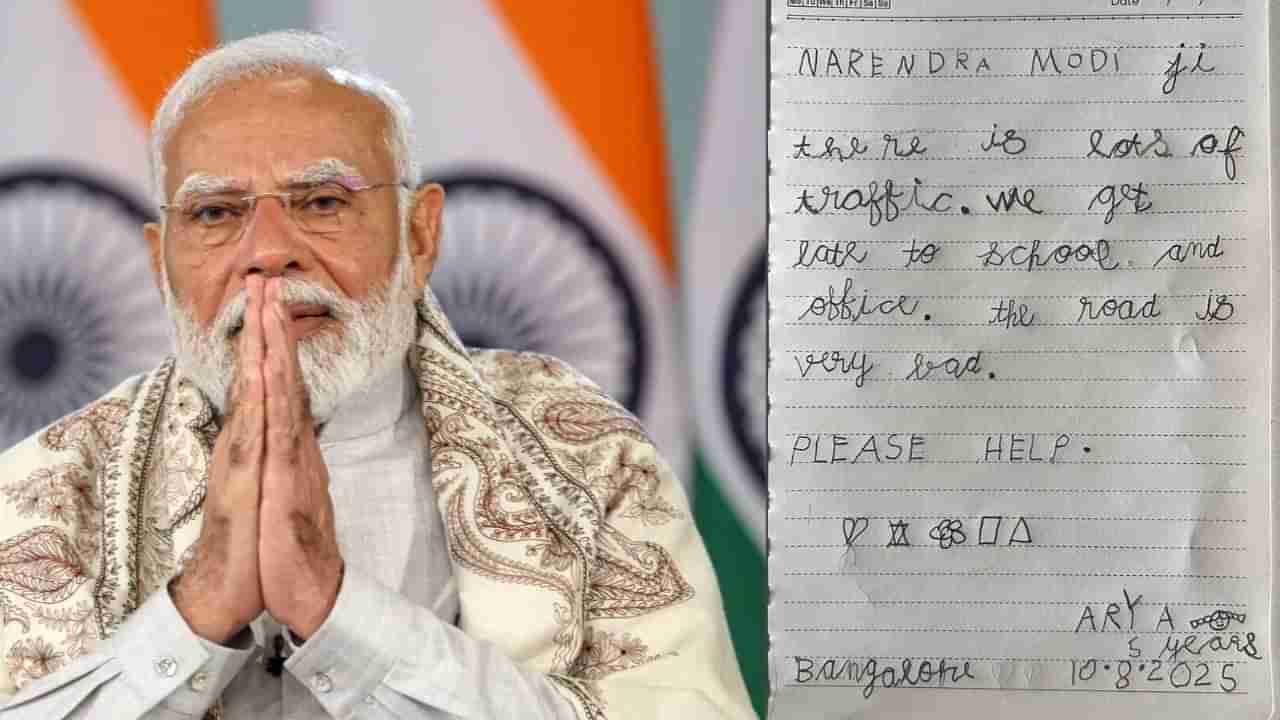 Mo Tu We Th Fr Sa Su
Date / /
NARENDRA MODI ji
there is lots of
traffic. we get
late to school and
office. the road is
very bad.
PLEASE HELP.
ARYA
5 years
Bangalore 10.8.2025